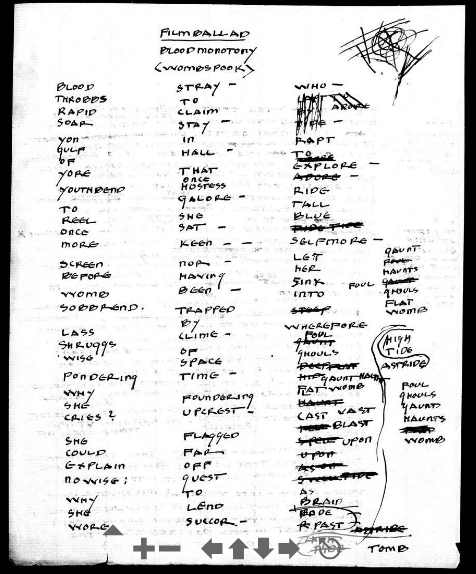 FILMBALLAD
BLOODMONOTONY
(WOMBSPOOK)
BLOOD
THROBBS
RAPID
SOAR
YON
GULF
OF
YORE
YOUTHBEND
TO
REEL
ONCE
MORE
SCREEN
BEFORE
WOMB
SOBBREND.
LASS
SHRUGGS
WISE
PONDERING
WHY
SHE
CRIES?
SHE
COULD
EXPLAIN
NOWISE:
WHY
SHE
WORE
STRAY –
TO
CLAIM
STAY –
IN
HALL –
THAT
ONCE
HOSTESS
GALORE –
SHE
SAT –
KEEN – –
NOR –
HAVING
BEEN –
TRAPPED
BY
CLIME –
OF
SPACE
TIME –
FOUNDERING
UPCREST –
FLAGGED
FAR
OFF
QUEST
TO
LEND
SUCCOR –
WHO –
ADORE
RAPT
TO
EXPLORE –
ADORE –
RIDE
TALL
BLUE
SELFMORE –
LET
HER
SINK
INTO
WHEREFORE
FOUL
GAUNT
GHOULS
GAUNT
FAT WOMB
HAUNT
CAST VAST
BLAST
UPON
UPON
AS
BRAIN
RODE
REPAST
GAUNT
HAUNTS
FOUL GHOULS
FLAT
WOMB
HIGH
TIDE
ASTRIDE
FOUL
GHOULS
GAUNT
HAUNTS
WOMB
ASTRIDE
TOMB